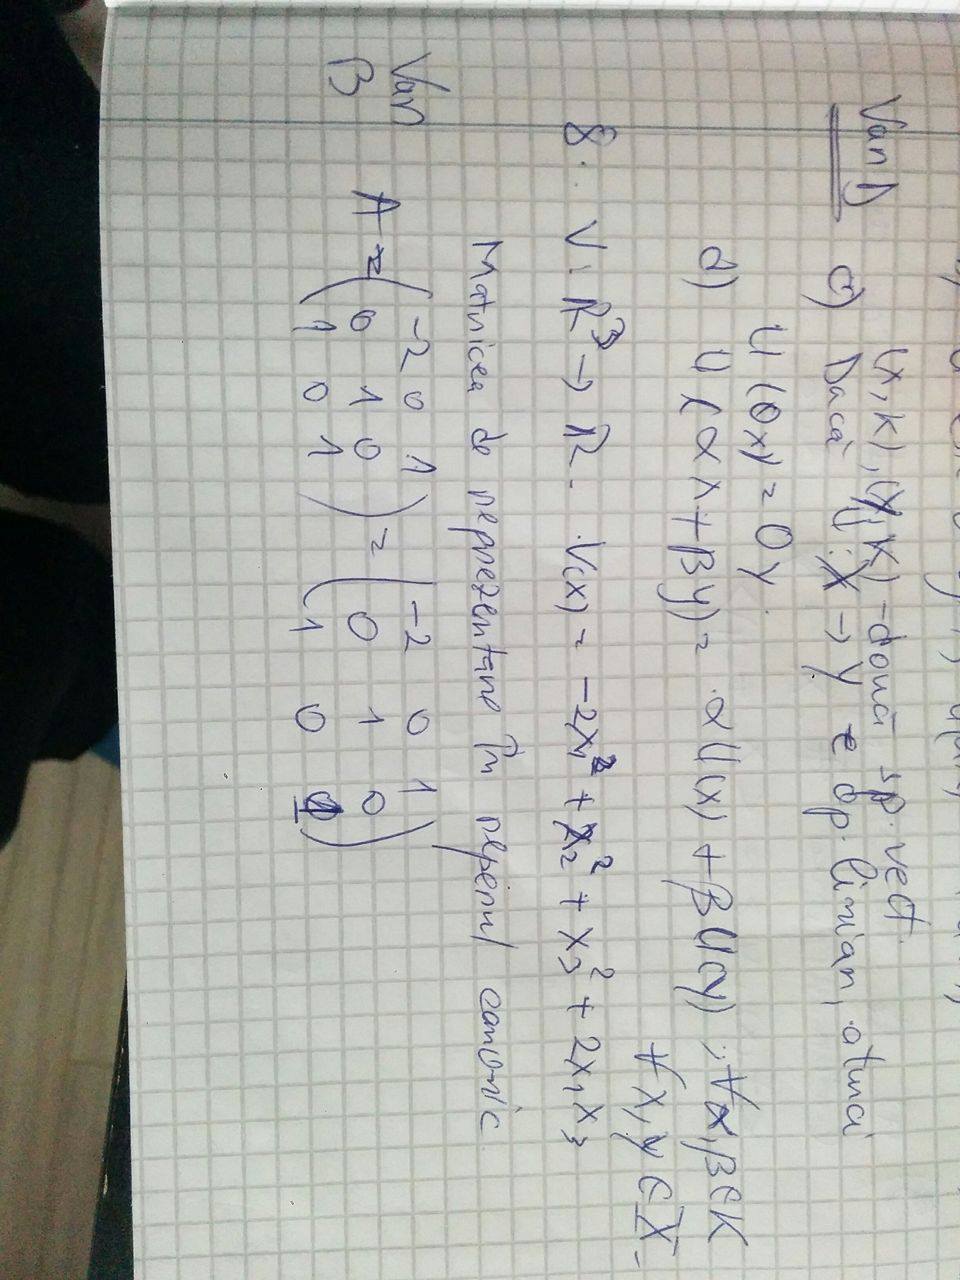 (X, K), (Y, K) - două sp. vect.
Van D c) Dacă U : X → Y e op. linian, atunci
U(0x) = 0y.
d) U(αx + βy) = αU(x) + βU(y), ∀α, β ∈ K
∀x, y ∈ X.
8. V : R³ → R. V(x) = -2x₁² + x₂² + x₃² + 2x₁x₃
Matricea de reprezentare în reperul canonic
Van B
A = ( -2 0 1 ) = ( -2 0 1 )
0 1 0 0 1 0
1 0 1 1 0 1